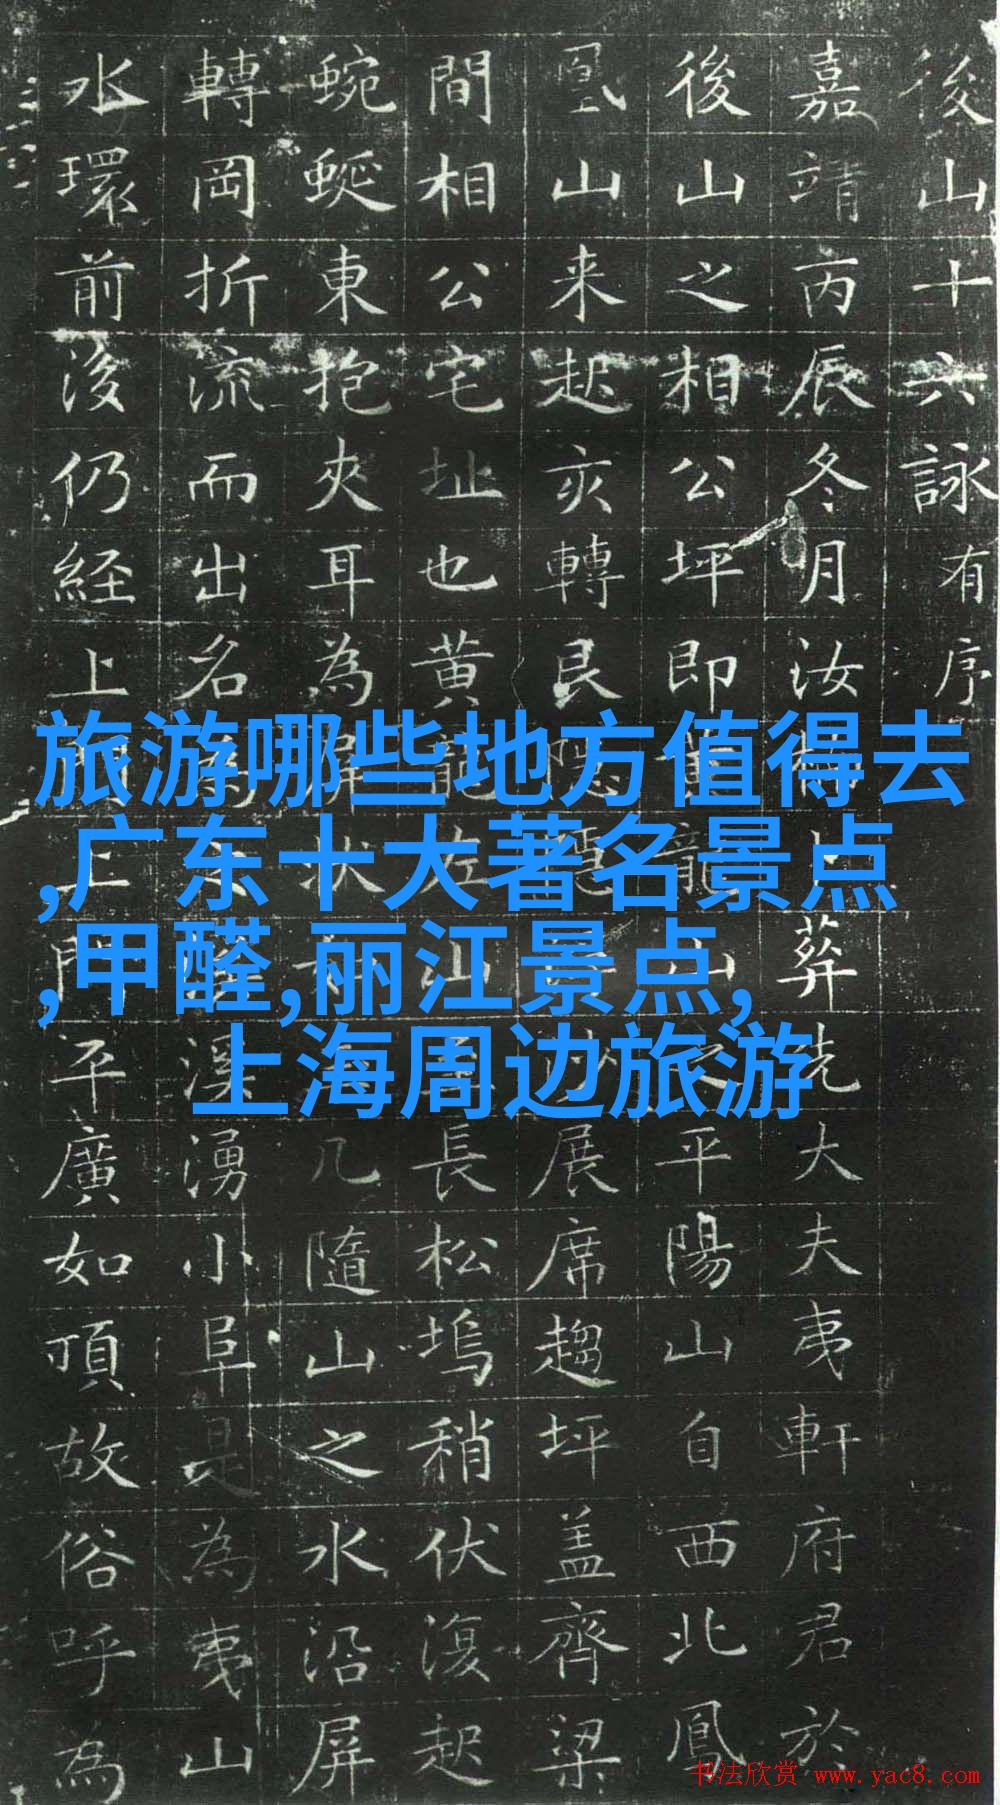 後山十六詠有序
嘉靖丙辰冬月汝葬先大夫夷軒府君於
後山之相公坪即龍山之平陽山自西北鳳
凰山来起亥轉艮隐隱展席趨坪盖齊梁
間相公宅址也黄龍左山長松塢稍伏復起
蜿蜒東抱夾耳為屏狀几隨山之水沿屏
轉岡折流而出名為溪湧小阜是為夷山
水環前後仍経上門平廣如頂故俗呼為
旅游哪些地方值得去
,广东十大著名景点
,甲醛,丽江景点,
上海周边旅游
书法欣赏 www.yac8.com